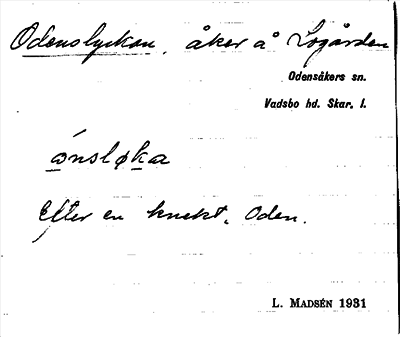 Odenslyckan, åker å Logården
Odensåkers sn.
Vadsbo hd. Skar. l.
ớnsløka
Efter en knekt, Oden.
L. MADSÉN 1931